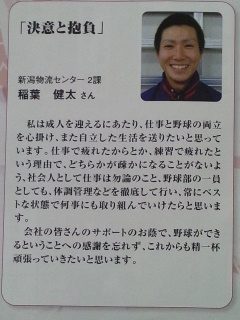 「決意と抱負」
新潟物流センター2課
稲葉　健太 さん
　私は成人を迎えるにあたり、仕事と野球の両立
を心掛け、また自立した生活を送りたいと思って
います。仕事で疲れたからとか、練習で疲れたと
いう理由で、どちらかが疎かになることがないよ
う、社会人として仕事は勿論のこと、野球部の一員
としても、体調管理などを徹底して行い、常にベス
トな状態で何事にも取り組んでいけたらと思いま
す。
　会社の皆さんのサポートのお蔭で、野球ができ
るということへの感謝を忘れず、これからも精一杯
頑張っていきたいと思います。